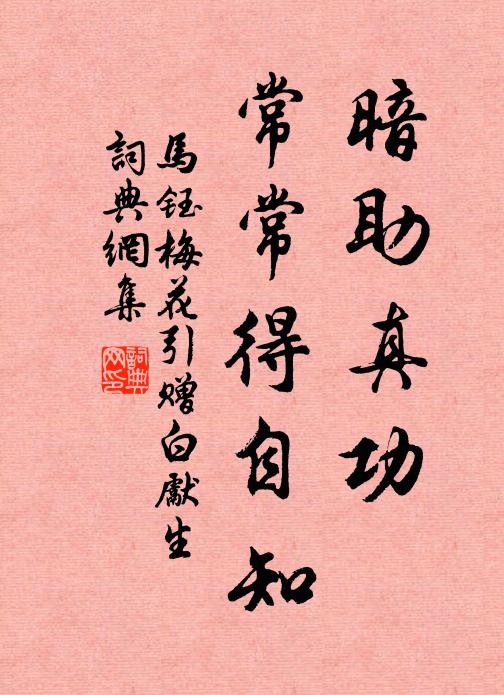 暗助真功
常常得自知
馬鈺梅花引贈白獻生
詞典網集
詞典網印